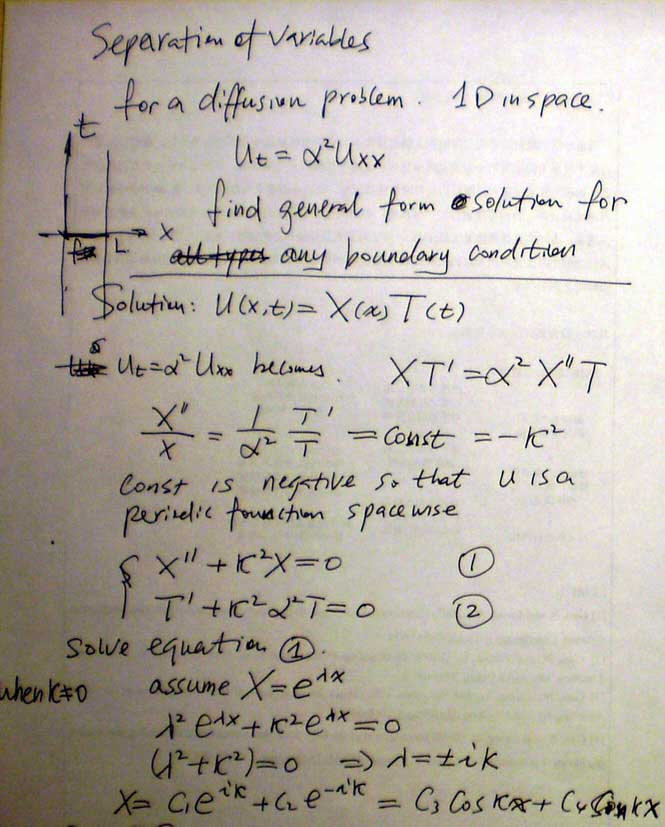 Separation of Variables
for a diffusion problem. 1D in space.
t
Ut = α²Uxx
find general form solution for
x
L
all types any boundary condition
Solution: U(x,t) = X(x) T(t)
Ut=α² Uxx becomes. XT' = α² X''T
X''/X = 1/α² T'/T = const = -κ²
Const is negative so that u is a
periodic function spacewise
{ X'' + κ²X = 0 ①
T' + κ²α²T = 0 ②
Solve equation ①.
when k≠0 assume X = e^λx
λ² e^λx + κ² e^λx = 0
(λ²+κ²)=0 => λ = ±ik
X = C₁e^iκ + C₂ e^-iκ = C₃ Cos κx + C₄ Sin kx